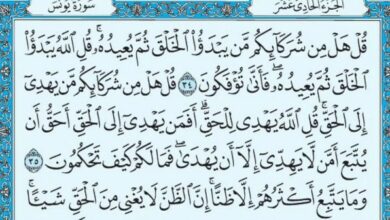 الجزء الحادي عشر
سورة يونس
قُلْ هَلْ مِن شُرَكَآئِكُم مَّن يَبْدَؤُا۟ ٱلْخَلْقَ ثُمَّ يُعِيدُهُۥ ۚ قُلِ ٱللَّهُ يَبْدَؤُا۟
ٱلْخَلْقَ ثُمَّ يُعِيدُهُۥ ۖ فَأَنَّىٰ تُؤْفَكُونَ ٣٤ قُلْ هَلْ مِن شُرَكَآئِكُم مَّن يَهْدِىٓ
إِلَى ٱلْحَقِّ ۚ قُلِ ٱللَّهُ يَهْدِى لِلْحَقِّ ۗ أَفَمَن يَهْدِىٓ إِلَى ٱلْحَقِّ أَحَقُّ أَن
يُتَّبَعَ أَمَّن لَّا يَهِدِّىٓ إِلَّآ أَن يُهْدَىٰ ۖ فَمَا لَكُمْ كَيْفَ تَحْكُمُونَ ٣٥
وَمَا يَتَّبِعُ أَكْثَرُهُمْ إِلَّا ظَنًّا ۚ إِنَّ ٱلظَّنَّ لَا يُغْنِى مِنَ ٱلْحَقِّ شَيْـًٔا ۚ